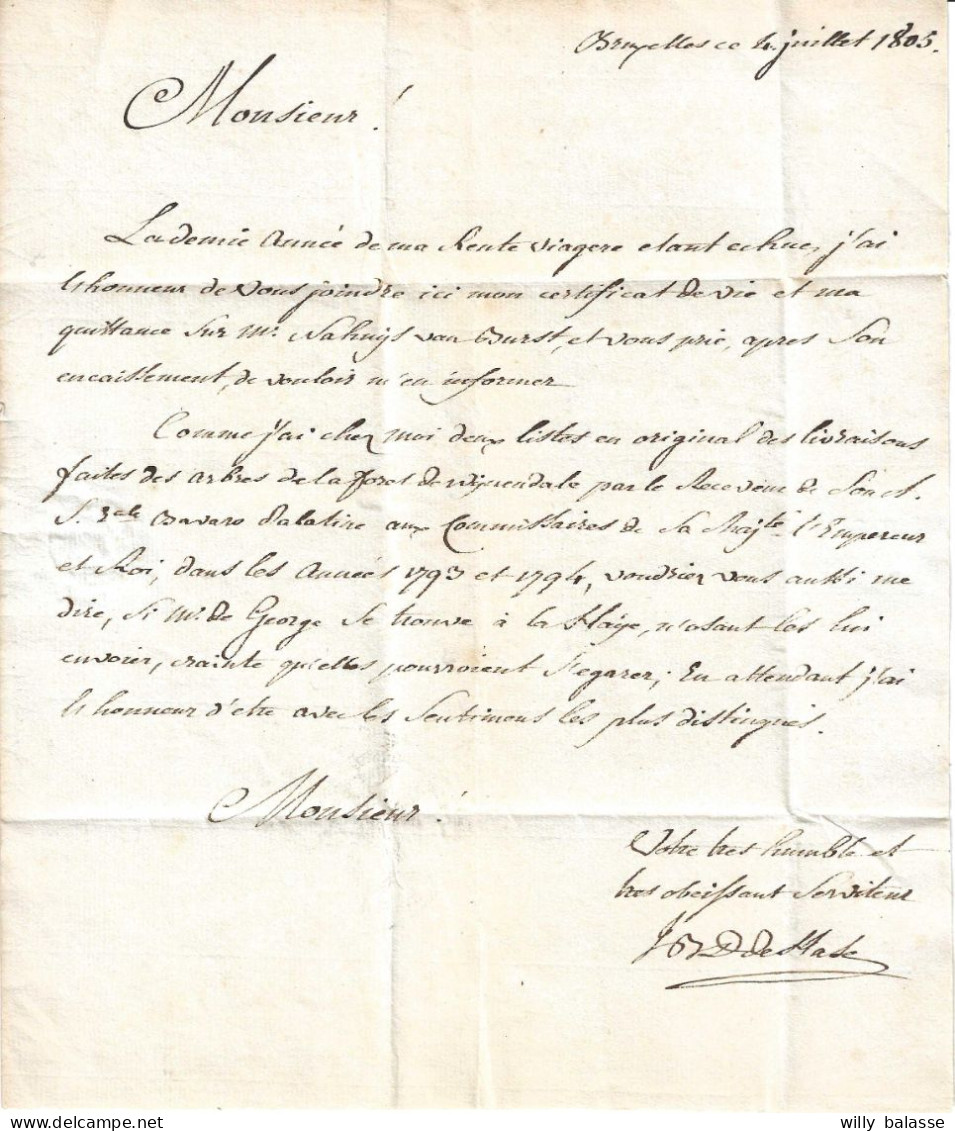 Bruxelles ce 4. juillet 1805.
Monsieur!
La demie Année de ma Rente viagere etant echue, j'ai
l'honneur de vous joindre ici mon certificat de vie et ma
quittance sur Mr. Nahuijs van Burst, et vous prie, apres son
encaissement, de vouloir m'en informer
Comme j'ai chez moi deux listes en original des livraisons
faites des arbres de la foret de Wijnendale par le Receveur de Son A.
S. Elle Bavaro Palatine aux Commissaires de Sa Majté. l'Empereur
et Roi, dans les Années 1793 et 1794, voudriez vous aussi me
dire, si Mr. de George se trouve à la Haÿe, n'osant les lui
envoier, crainte qu'elles pourroient s'egarer; En attendant j'ai
l'honneur d'etre avec les sentimens les plus distingués.
Monsieur!
Votre tres humble et
tres obeissant Serviteur
de Hase
willy balasse